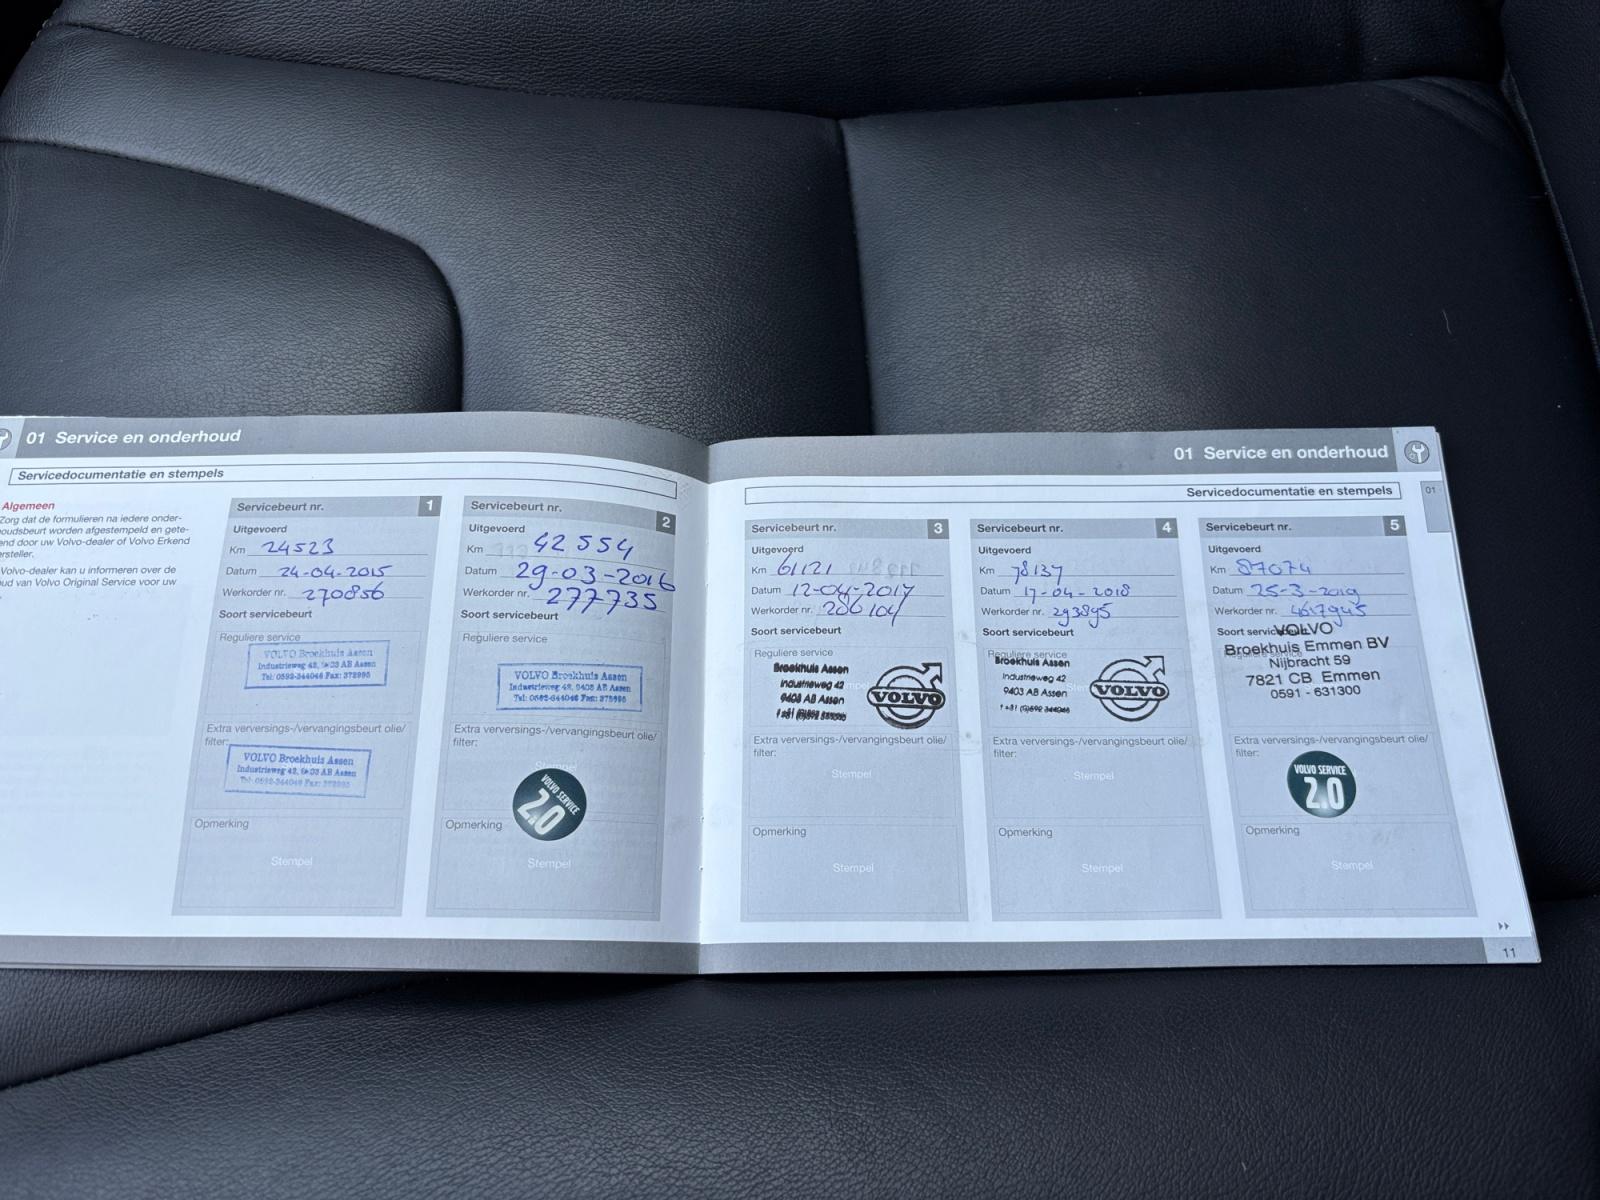 01 Service en onderhoud
Servicedocumentatie en stempels
Algemeen
Zorg dat de formulieren na iedere onder-
houdsbeurt worden afgestempeld en gete-
end door uw Volvo-dealer of Volvo Erkend
ersteller.
Volvo-dealer kan u informeren over de
ud van Volvo Original Service voor uw
Servicebeurt nr. 1
Uitgevoerd
Km 24523
Datum 24-04-2015
Werkorder nr. 270856
Soort servicebeurt
Reguliere service
VOLVO Broekhuis Assen
Industrieweg 42, 9403 AB Assen
Tel: 0592-344046 Fax: 372995
Extra verversings-/vervangingsbeurt olie/
filter:
VOLVO Broekhuis Assen
Industrieweg 42, 9403 AB Assen
Tel: 0592-344046 Fax: 372995
Opmerking
Stempel
Servicebeurt nr. 2
Uitgevoerd
Km 42554
Datum 29-03-2016
Werkorder nr. 277735
Soort servicebeurt
Reguliere service
VOLVO Broekhuis Assen
Industrieweg 42, 9403 AB Assen
Tel: 0592-344046 Fax: 372995
Extra verversings-/vervangingsbeurt olie/
filter:
Stempel
VOLVO SERVICE
2.0
Opmerking
Stempel
01 Service en onderhoud
Servicedocumentatie en stempels
01
Servicebeurt nr. 3
Uitgevoerd
Km 61121
Datum 12-04-2017
Werkorder nr. 286104
Soort servicebeurt
Reguliere service
Broekhuis Assen
Industrieweg 42
9403 AB Assen
VOLVO
Extra verversings-/vervangingsbeurt olie/
filter:
Stempel
Opmerking
Stempel
Servicebeurt nr. 4
Uitgevoerd
Km 78137
Datum 17-04-2018
Werkorder nr. 293895
Soort servicebeurt
Reguliere service
Broekhuis Assen
Industrieweg 42
9403 AB Assen
VOLVO
Extra verversings-/vervangingsbeurt olie/
filter:
Stempel
Opmerking
Stempel
Servicebeurt nr. 5
Uitgevoerd
Km 87074
Datum 25-3-2019
Werkorder nr. 4617945
Soort servicebeurt
VOLVO
Broekhuis Emmen BV
Nijbracht 59
7821 CB Emmen
0591 - 631300
Extra verversings-/vervangingsbeurt olie/
filter:
VOLVO SERVICE
2.0
Opmerking
Stempel
11